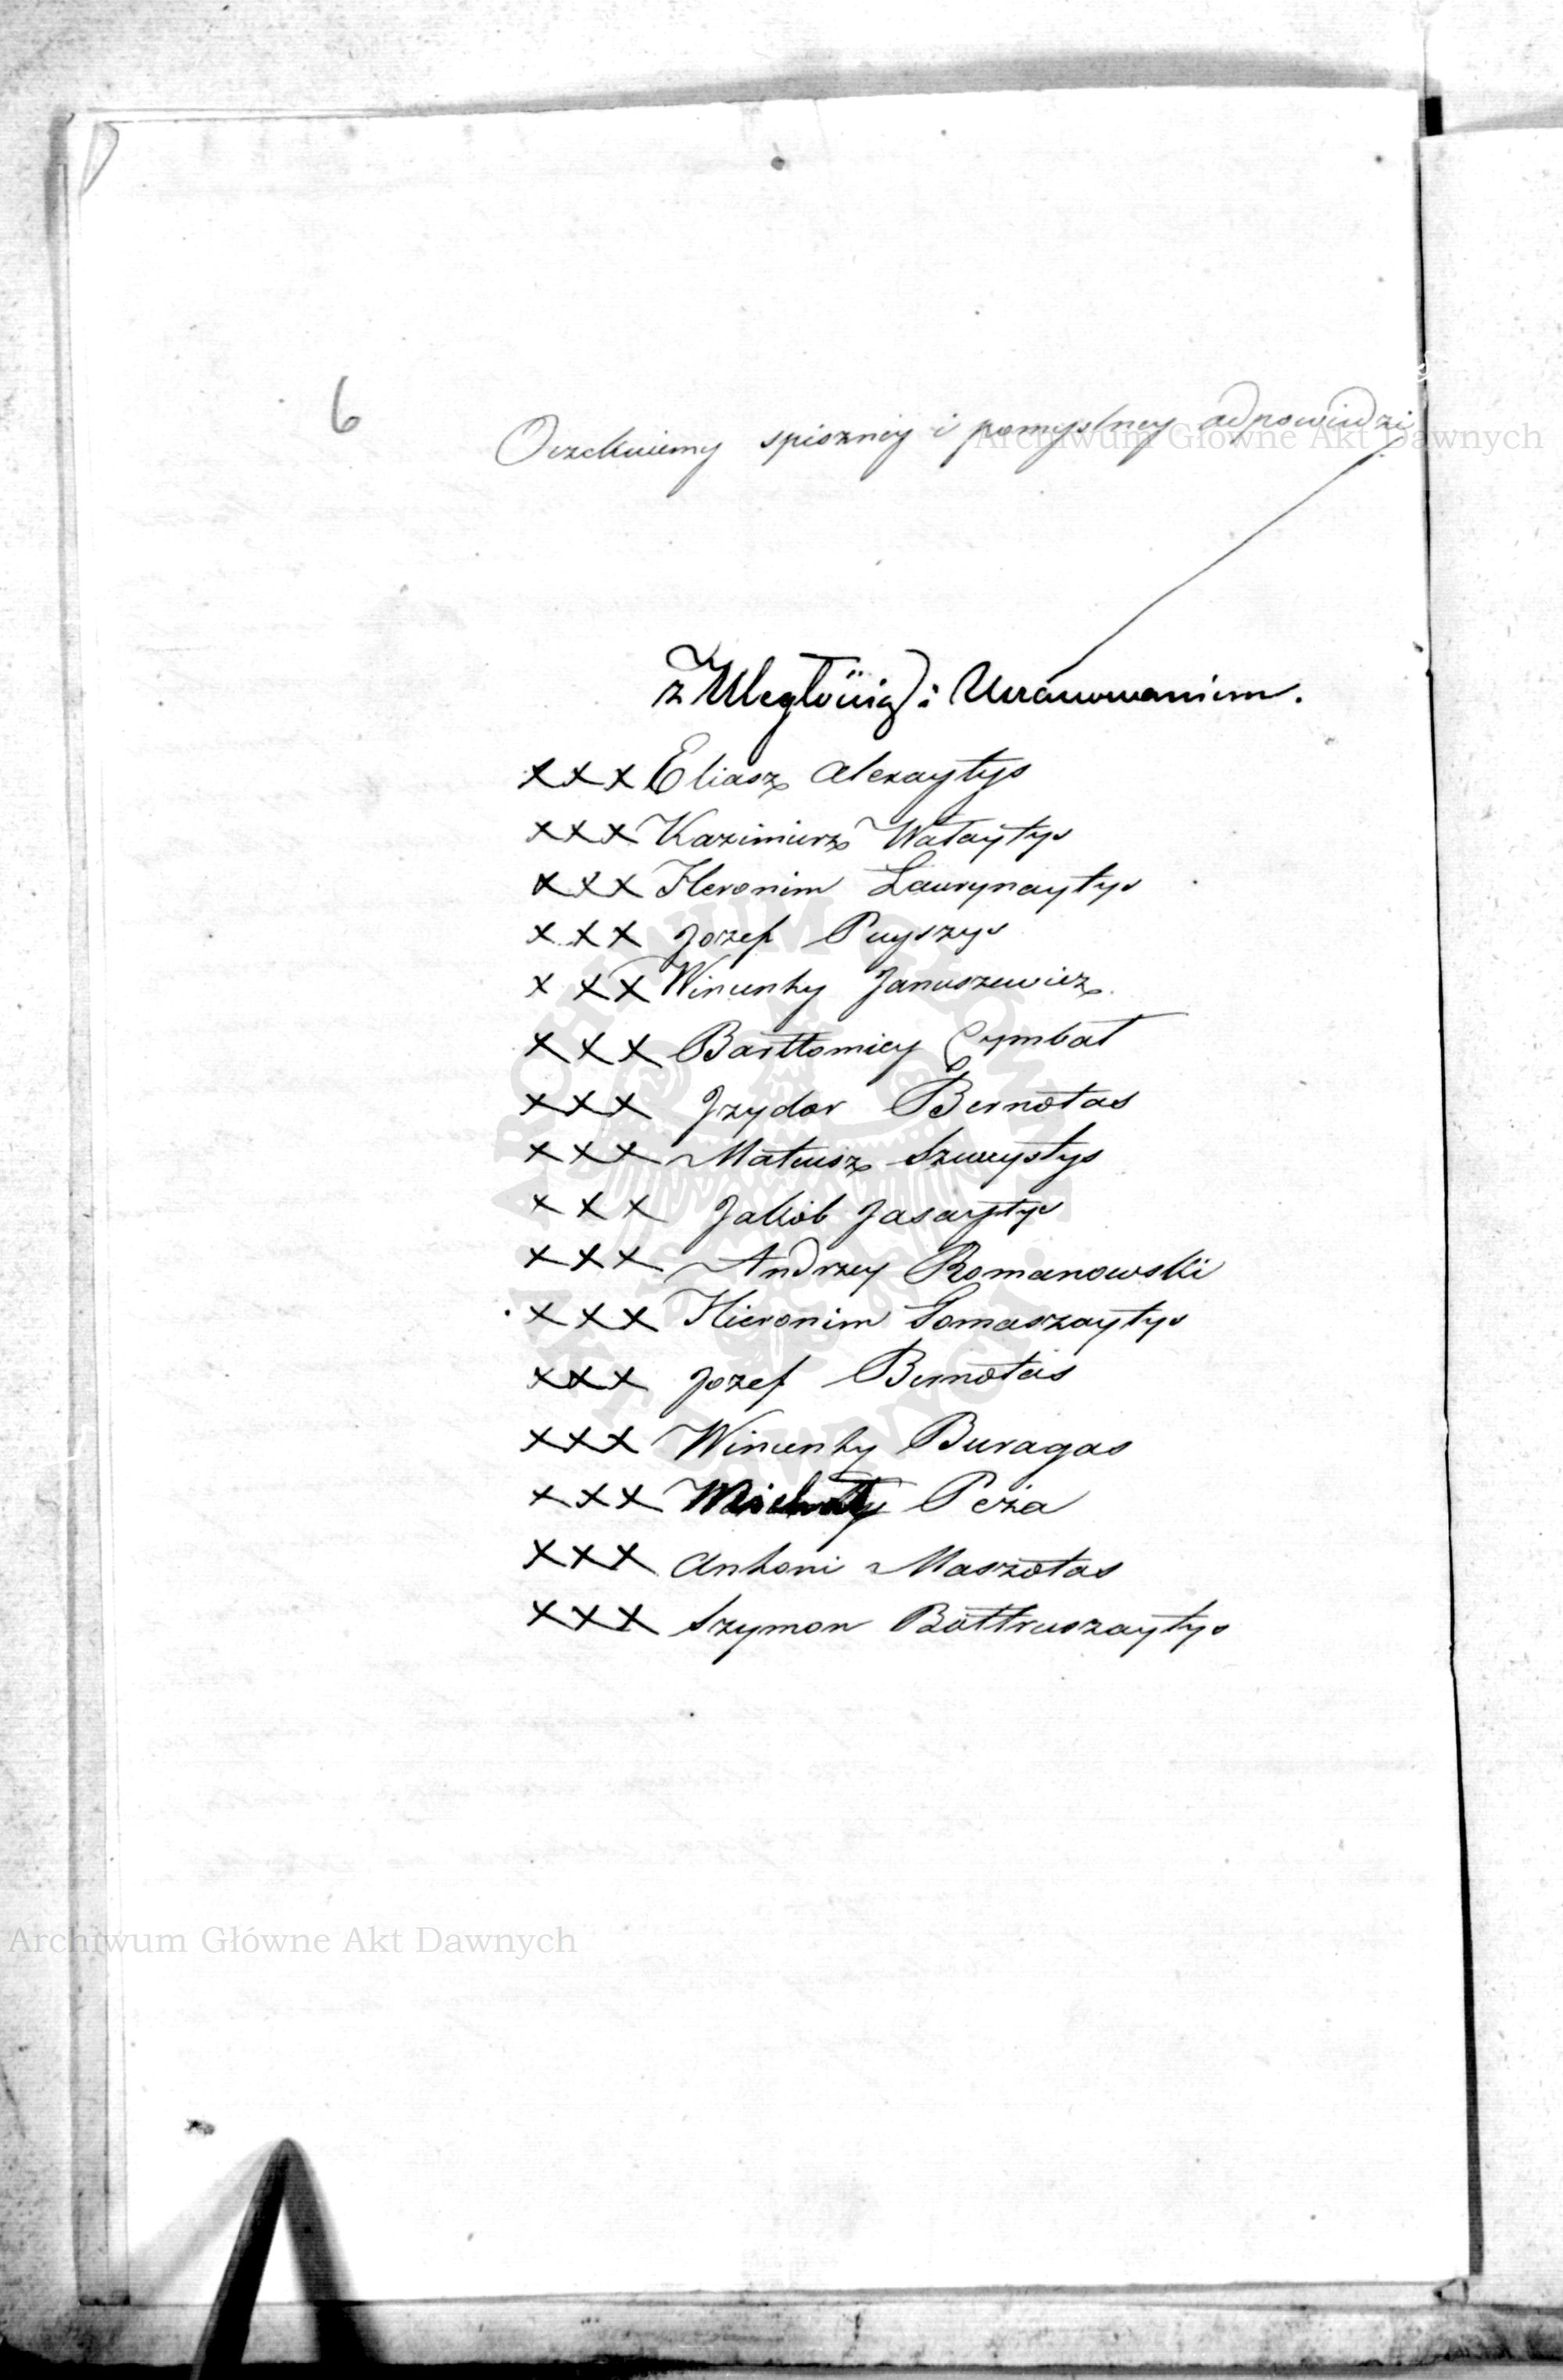 6
Oczekuiemy spieszney i pomyslney odpowiedzi
Archiwum Główne Akt Dawnych
z Uległością i Uszanowaniem.
xxx Eliasz Alexaytys
xxx Kazimierz Wataytys
xxx Heronim Laurynaytys
xxx Jozef Puyszys
xxx Wincenty Januszewicz
xxx Bartłomiey Cymbat
xxx Jzydor Bernotas
xxx Mateusz
xxx Jakób Jasaytys
xxx Andrzey Romanowski
xxx Hieronim Tomaszaytys
xxx Jozef Bernotas
xxx Wincenty Buragas
xxx Peża
xxx Antoni Maszotas
xxx Szymon Bałtruszaytys
Archiwum Główne Akt Dawnych